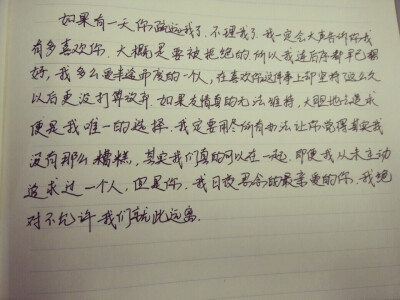 如果有一天你疏远我了,不理我了,我一定会大声告诉你我
有多喜欢你,大概是要被拒绝的所以我连后序都早已想
好,我多么要幸运而度的一个人,在喜欢你这件事上却坚持了这么久
以后更没打算放弃.如果友情真的无法维持,大胆地去追求
便是我唯一的选择.我定要用尽所有办法让你觉得其实我
没有那么糟糕,其实我们真的可以在一起.即使我从未主动
追求过一个人,但是你,我日夜思念的最亲爱的你,我绝
对不允许我们就此远离.